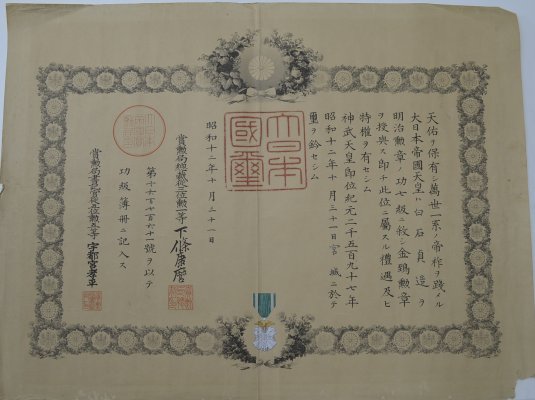 天佑ヲ保有シ萬世一系ノ帝祚ヲ踐メル
大日本帝國天皇ハ白石貞造ヲ
明治勲章ノ功七級ニ敍シ金鵄勲章
ヲ授與ス即チ此位ニ屬スル禮遇及ヒ
特權ヲ有セシム
神武天皇即位紀元二千五百九十七年
昭和十二年十月三十一日宮城ニ於テ
璽ヲ鈐セシム
大日本
國璽
昭和十二年十月三十一日
賞勲局總裁從三位勲二等下條康麿
百七百六十一號ヲ以テ
功級簿冊ニ記入ス
賞勲局書記官正五位勲五等宇都宮孝平